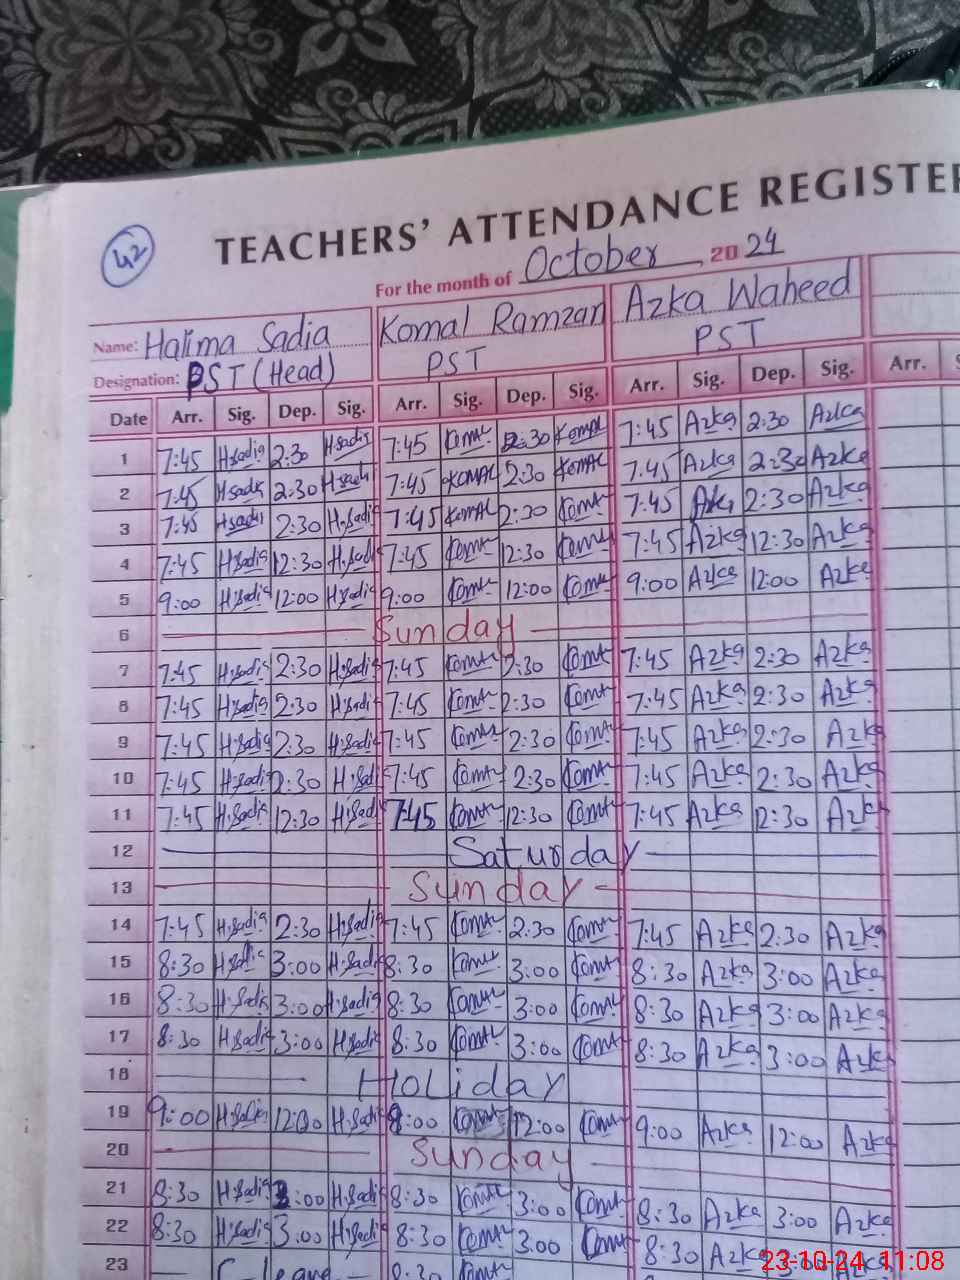 42
TEACHERS' ATTENDANCE REGISTER
For the month of October, 2024
Name: Halima Sadia Komal Ramzan Azka Waheed
Designation: PST (Head) PST PST
Date Arr. Sig. Dep. Sig. Arr. Sig. Dep. Sig. Arr. Sig. Dep. Sig. Arr. S
1 7:45 H.sadia 2:30 H.sadia 7:45 Komal 2:30 Komal 7:45 Azka 2:30 Azka
2 7:45 H.sadia 2:30 H.sadia 7:45 Komal 2:30 Komal 7:45 Azka 2:30 Azka
3 7:45 H.sadia 2:30 H.sadia 7:45 Komal 2:30 Komal 7:45 Azka 2:30 Azka
4 7:45 H.sadia 12:30 H.sadia 7:45 Komal 12:30 Komal 7:45 Azka 12:30 Azka
5 9:00 H.sadia 12:00 H.sadia 9:00 Komal 12:00 Komal 9:00 Azka 12:00 Azka
6 Sunday
7 7:45 H.sadia 2:30 H.sadia 7:45 Komal 2:30 Komal 7:45 Azka 2:30 Azka
8 7:45 H.sadia 2:30 H.sadia 7:45 Komal 2:30 Komal 7:45 Azka 2:30 Azka
9 7:45 H.sadia 2:30 H.sadia 7:45 Komal 2:30 Komal 7:45 Azka 2:30 Azka
10 7:45 H.sadia 2:30 H.sadia 7:45 Komal 2:30 Komal 7:45 Azka 2:30 Azka
11 7:45 H.sadia 12:30 H.sadia 7:45 Komal 12:30 Komal 7:45 Azka 12:30 Azka
12 Saturday
13 Sunday
14 7:45 H.sadia 2:30 H.sadia 7:45 Komal 2:30 Komal 7:45 Azka 2:30 Azka
15 8:30 H.sadia 3:00 H.sadia 8:30 Komal 3:00 Komal 8:30 Azka 3:00 Azka
16 8:30 H.sadia 3:00 H.sadia 8:30 Komal 3:00 Komal 8:30 Azka 3:00 Azka
17 8:30 H.sadia 3:00 H.sadia 8:30 Komal 3:00 Komal 8:30 Azka 3:00 Azka
18 Holiday
19 9:00 H.sadia 12:00 H.sadia 9:00 Komal 12:00 Komal 9:00 Azka 12:00 Azka
20 Sunday
21 8:30 H.sadia 3:00 H.sadia 8:30 Komal 3:00 Komal 8:30 Azka 3:00 Azka
22 8:30 H.sadia 3:00 H.sadia 8:30 Komal 3:00 Komal 8:30 Azka 3:00 Azka
23 C-leave 8:30
23-10-24 11:08